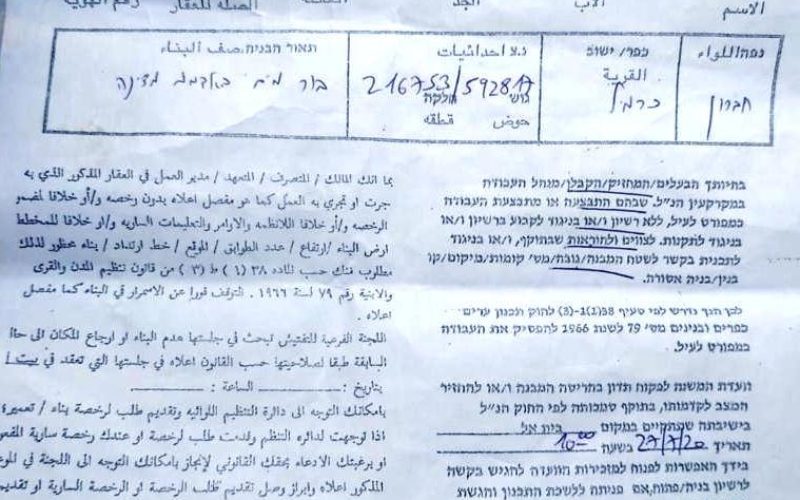 الاسم الأب الجد الصلة للعقار رقم الهوية
נפה/اللواء
חברון
כפר/ ישוב
القرية
כרמל
נ.צ احداثيات
216753/592817
גוש חלקה
حوض قطعه
תאור הבניה/وصف البناء
בור מים באדמת מדינה
בהיותך הבעלים/המחזיק/הקבלן/מנהל העבודה
במקרקעין הנ"ל. שבהם התבצעה או מתבצעת העבודה
כמפורט לעיל, ללא רשיון ו/או בניגוד לקבוע ברשיון ו/או
בניגוד לתקנות. לצווים ולהוראות שבתוקף, ו/או בניגוד
לתכנית בקשר לשטח המבנה/גובה/מס' קומות/מיקום/קו
בנין/בניה אסורה.
לכן הנך נדרש לפי סעיף 38(1)-(3) לחוק תכנון ערים
כפרים ובנינים מס' 79 לשנת 1966 להפסיק את העבודה
כמפורט לעיל.
וועדת המשנה לפקוח תדון בהריסת המבנה ו/או להחזיר
המצב לקדמותו, בתוקף סמכותה לפי החוק הנ"ל
בישיבתה שתתקיים במקום בית אל
תאריך 27/7/20 בשעה 10:00
בידך האפשרות לפנות למזכירות הוועדה להגיש בקשה
לרשיון בניה/פתוח, אם פניתה ללשכת התכנון והגשת
بما انك المالك / المتصرف / المتعهد / مدير العمل في العقار المذكور الذي به
جرت او تجري به العمل كما هو مفصل اعلاه بدون رخصه و/أو خلافا لمضمون
الرخصه و/أو خلافا للانظمه والاوامر والتعليمات الساريه و/او خلافا للمخطط
ارض البناء /ارتفاع / عدد الطوابق / الموقع / خط ارتداد / بناء محظور لذلك
مطلوب منك حسب الماده ٣٨ (١) ط (٣) من قانون تنظيم المدن والقرى
والابنية رقم ٧٩ لسنة ١٩٦٦ التوقف فورا عن الاستمرار في البناء كما مفصل
اعلاه .
اللجنة الفرعية للتفتيش تبحث في جلستها هدم البناء او ارجاع المكان الى حالته
السابقة طبقا لصلاحيتها حسب القانون اعلاه في جلستها التي تعقد في بيت
بتاريخ : الساعة :
بامكانك التوجه الى دائرة التنظيم اللوائيه وتقديم طلب لرخصة بناء / تعميرة
اذا توجهت لدائره التنظم وقدمت طلب لرخصة او عندك رخصة سارية المفعول
او برغبتك الادعاء بحقك القانوني لإنجاز بامكانك التوجه الى اللجنة في الموعد
المذكور اعلاه وابراز وصل تقديم طلب الرخصة او الرخصة السارية او تقديم